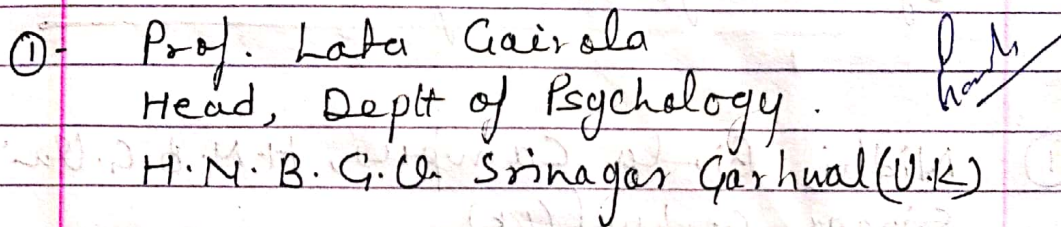 ① - Prof. Lata Gairola
Head, Deptt of Psychology.
H.N.B.G.U. Srinagar Garhwal (U.K)